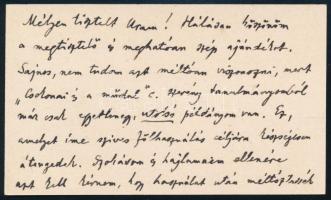 Mélyen tisztelt Uram! Hálásan köszönöm
a megtisztelő és meghatóan szép ajándékot.
Sajnos, nem tudom azt méltóan viszonozni, mert
„Csokonai és a műdal" c. szerény tanulmányomból
már csak egyetlenegy, utolsó példányom van. Ez,
amelyet íme szíves fölhasználás céljára készségesen
átengedek. Szokásom és hajlamaim ellenére
azt kell kérnem, hogy használat után méltóztassék